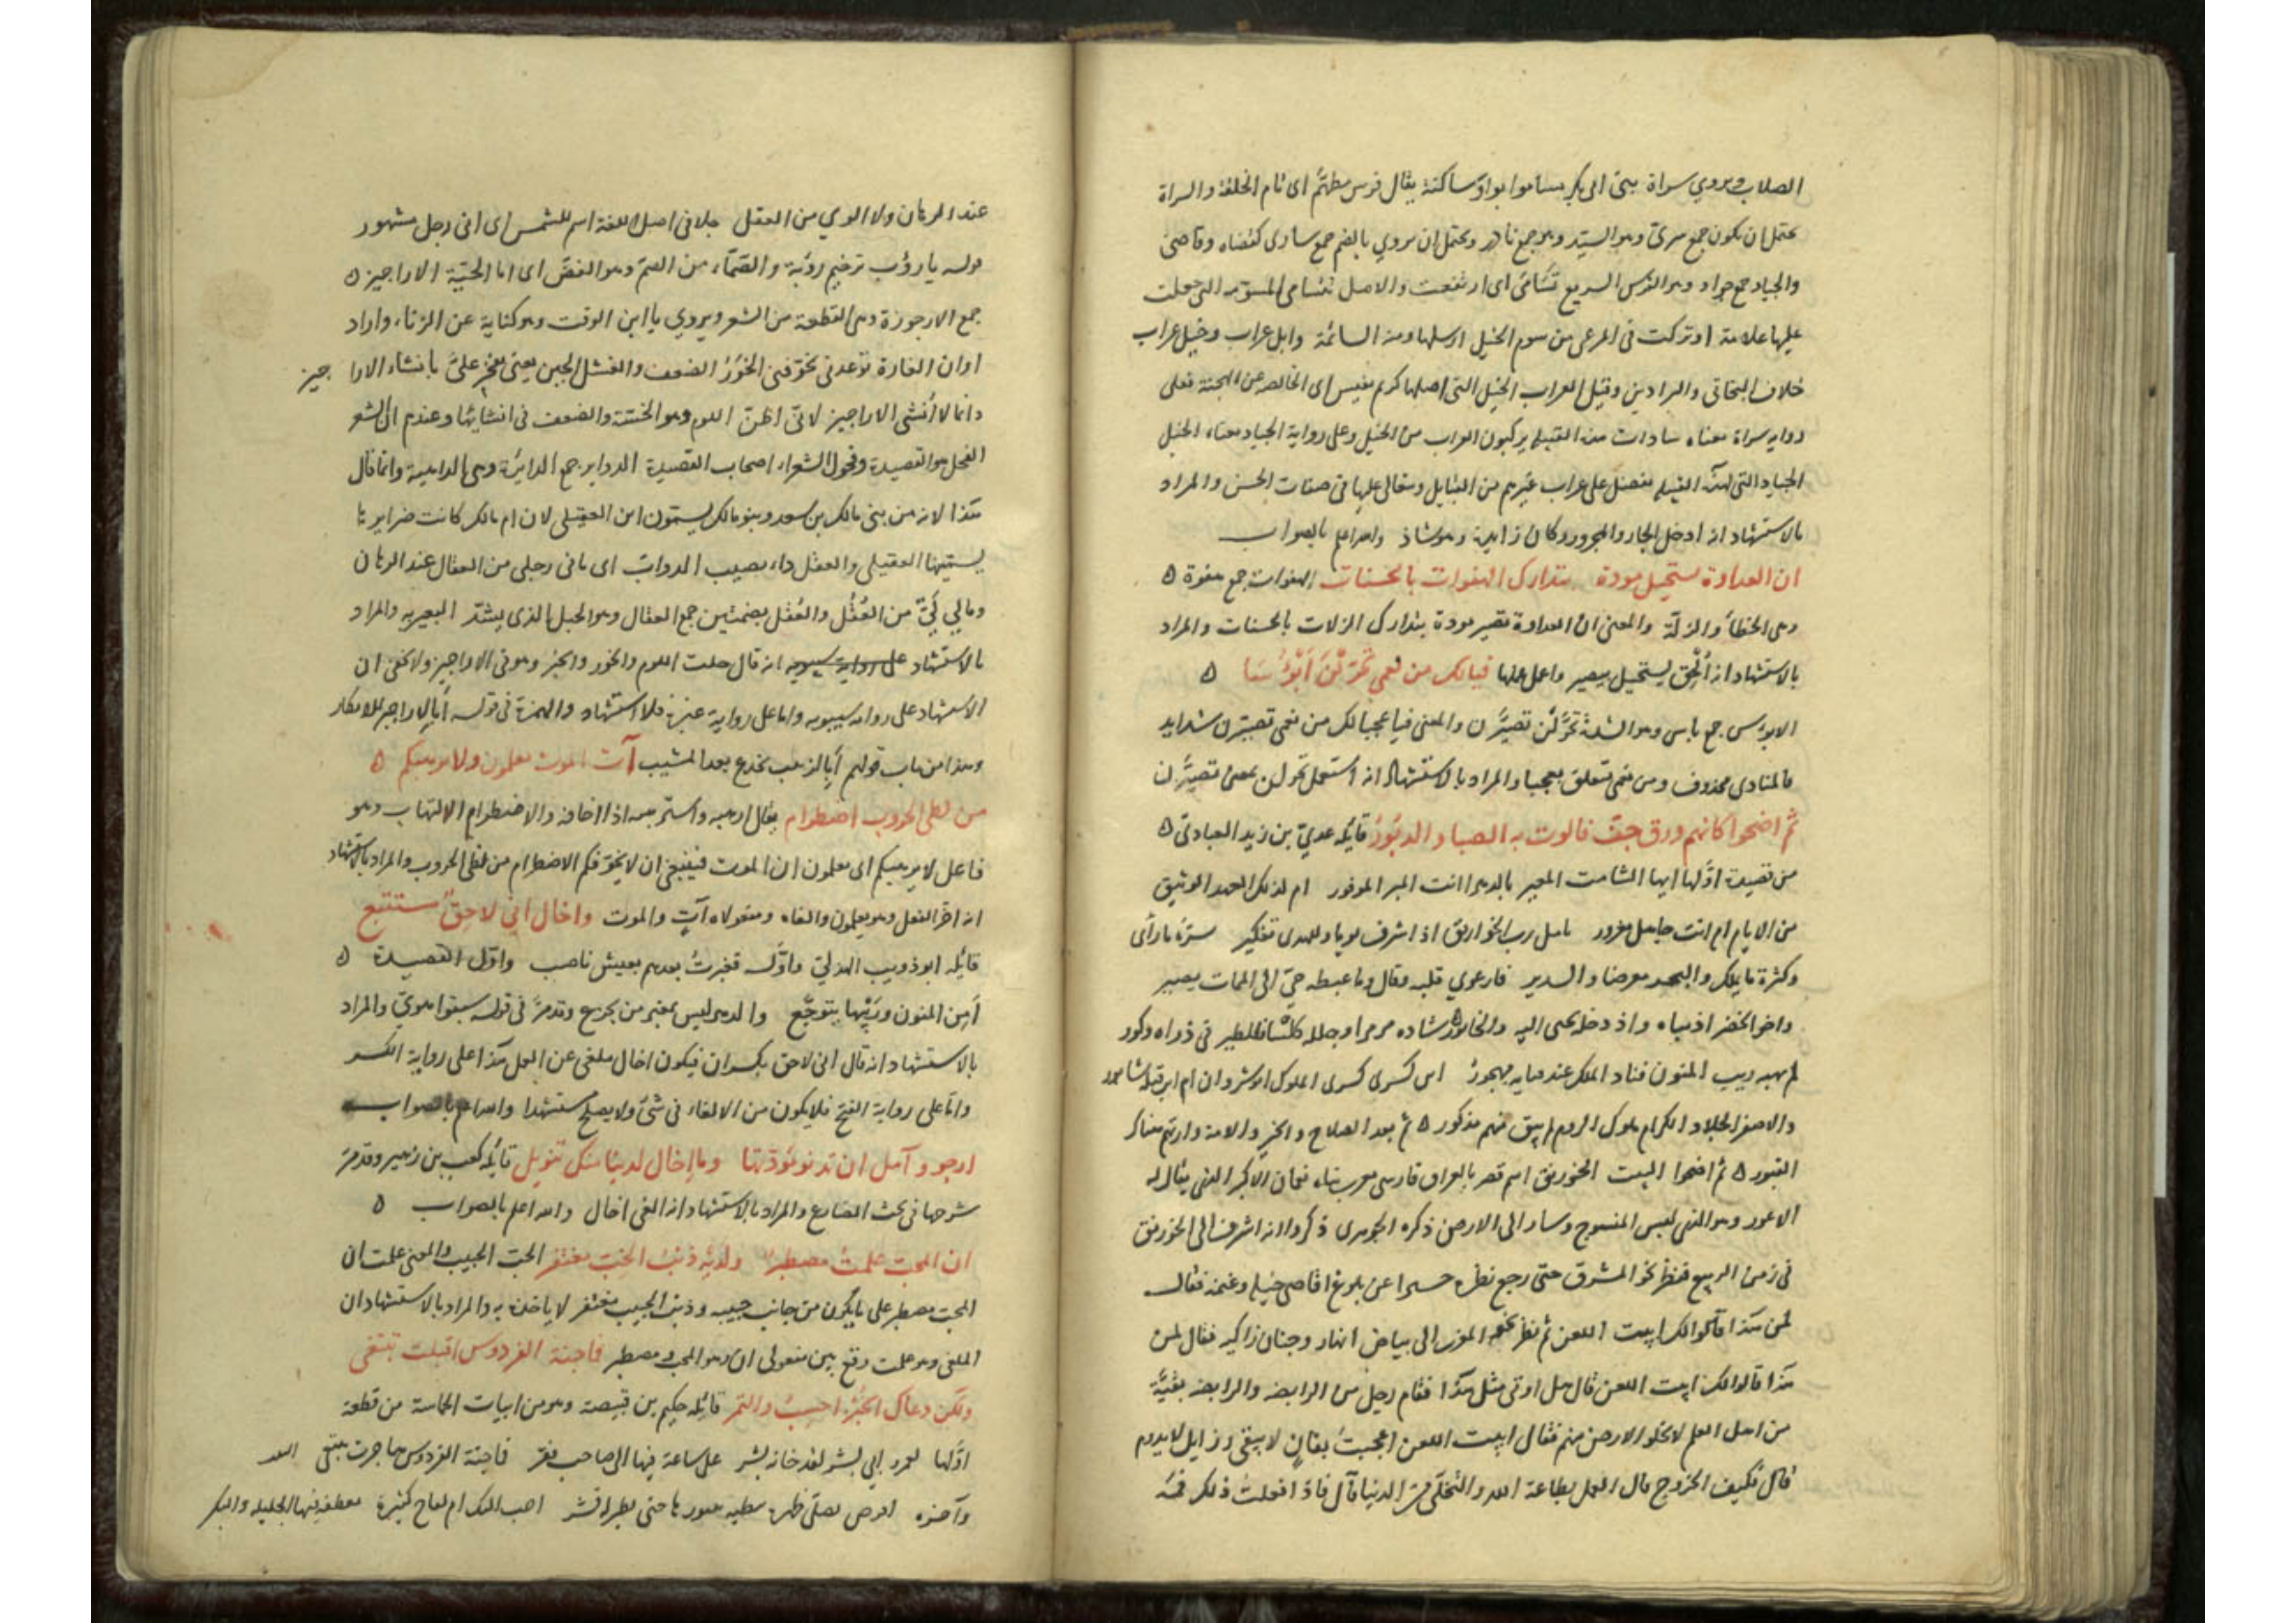 الصلاب ويروي سراة بني ابي بكر تساموا بواو ساكنة يقال فرس مطهّم اى تام الخلقة والسراة
يحتمل ان يكون جمع سريّ وهو السيّد وهو جمع نادر ويحتمل ان يروي بالضم جمع سارى كقضاة وقاضى
والجياد جمع جواد وهو الفرس السريع تَسَامَى اى ارتفعت والاصل تتسامى المسوّمة التى جعلت
عليها علامة او تركت فى المرعى من سوم الخيل ارسلها ومنه السائمة وابل عراب وخيل عراب
خلاف البخاتى والبرادين وقيل العراب الخيل التى اصلها كريم نفيس اى الخالصة عن الهجنة فعلى
رواية سراة معناه سادات هذه القبيلة يركبون العراب من الخيل وعلى رواية الجياد معناه الخيل
الجياد التى لهذه القبيلة تفضل على عراب غيرهم من القبايل وتتعالى عليها فى صفات الحسن والمراد
بالاستشهاد انه ادخل الجار والمجرور وكان زايدة وهو شاذ والله اعلم بالصواب
ان العداوة تستحيل مودة بتدارك الهفوات بالحسنات الهفوات جمع هفوة ه
وهى الخطأ والزلّة والمعنى ان العداوة تصير مودة بتدارك الزلات بالحسنات والمراد
بالاستشهاد انه أُلْحِق يستحيل بيصير واعمل عملها فيالك من نعمي تَحَوَّلْنَ أَبْؤُسَا ه
الابؤس جمع بأس وهو الشدة تَحَوَّلْن تَصيَّرن والمعنى فيا عجبا لك من نعمى تصيّرن شدايد
فالمنادى محذوف ومن نعمى تتعلق بعجبا والمراد بالاستشهاد انه استعمل تحولن بمعنى تصيَّرن
ثم اضحوا كانهم ورق جفّ فالوت به الصبا والدبُورُ قائله عديّ بن زيد العبادىّ ه
من قصيدة اوّلها ايها الشامت المعير بالدهر اانت المبر الموفور ام لديك العهد الوثيق
من الايام ام انت جاهل مغرور تامل رب الخوارنق اذ اشرف يوما وللهدى تفكير سرّه ما رأى
وكثرة ما يملك والبحر معرضا والسدير فارعوي قلبه وقال وما غبطة حيّ الى الممات يصير
واخو الحضر اذ بناه واذ دجلة تجبى اليه والخابور شاده مرمرا وجلله كلسا فللطير فى ذراه وكور
لم يهبه ريب المنون فباد الملك عنه فبابه مهجورُ اين كسرى كسرى الملوك انوشروان ام اين قبله سابور
والاصفر الجلاد الكرام ملوك الروم لم يبق منهم مذكور ه ثم بعد الفلاح والخير والامة وارتهم هناك
القبور ه ثم اضحوا البيت الخورنق اسم قصر بالعراق فارسى معرب بناه نعمان الاكبر الذى يقال له
الاعور وهو الذى لبس المسوح وساد الى الارض ذكره الجوهرى ذكروا انه اشرف الى الخورنق
فى زمن الربيع فنظر نحو المشرق حتى رجع نظره حسرا عن بلوغ اقاصى خيله وغنمه فقال
لمن هذا قالوا لك ابيت اللعن ثم نظر نحو المغرب الى بياض انهار وجنان زاكية فقال لمن
هذا قالوا لك ابيت اللعن قال هل اوتى مثل هذا فقام رجل من الرابضة والرابضة بقيَّة
من اهل العلم لا تخلو الارض منهم فقال ابيت اللعن اعجبتَ بفانٍ لا يبقى وزايل لا يدوم
قال فكيف الخروج قال العمل بطاعة الله والتخلّى من الدنيا قال فاذا فعلتُ ذلك فمه
عند الرهان ولا الوي من العقل جلا فى اصل اللغة اسم للشمس اى انى رجل مشهور
قوله يا رؤب ترخيم رؤبة والصمّاء من الصمّ وهو النقض اى اما الحيّة الاراجيز ه
جمع الارجوزة وهى القطعة من الشعر ويروي يا ابن الوقت وهو كناية عن الزناء واراد
اوان الغارة توعدنى تخوّفنى الخَوَرُ الضعف والفشل الجبن يعنى يفخر علىّ بانشاء الاراجيز
وانما لا أُنشى الاراجيز لانى اظنّ اللوم وهو الخسّة والضعف فى انشائها وعندهم ان الشعر
الفحل هو القصيدة وفحول الشعراء اصحاب القصيدة الدواير جمع الدائرة وهى الداهية وانما قال
هذا لانه من بنى مالك بن سعد وبنو مالك يسمّون ابن العقيلى لان ام مالك كانت ضرايرها
يسمّيها العقيلى والعقل داء يصيب الدوابّ اى ما فى رجلى من العقال عند الرهان
وما بي لَيٌّ من العُقُل والعُقل بضمتين جمع العقال وهو الحبل الذى يشدّ البعير به والمراد
بالاستشهاد على رواية سيبويه انه قال خلت اللوم والخور والخبر وهو فى الاراجيز ولا يخفى ان
الاستشهاد على رواية سيبويه واما على رواية غيره فلا استشهاد والهمزة فى قوله أبالاراجيز للانكار
وهذا من باب قولهم أبا لزبيب تخدع بعد المشيب آت الموت تعلمون ولا يرهبكم ه
من لظى الحروب اضطرام يقال ارهبه واسترهبه اذا اخافه والاضطرام الالتهاب وهو
فاعل لا يرهبكم اى تعلمون ان الموت فينبغى ان لا يخوّفكم الاضطرام من لظى الحروب والمراد بالاستشهاد
انه اخّر الفعل وهو يعلمون والغاه ومفعولاه آتٍ والموت واخال اني لاحِقٌ مستتبع
قائله ابو ذويب الهذلىّ واوّله فغبرتُ بعدهم بعيش ناصب واوّل القصيدة ه
أَمِن المنون ورَيْبها يتوجّع والدهر ليس بمعتبٍ من يجزع وقد مرّ فى قوله سبقوا هويّ والمراد
بالاستشهاد انه قال انى لاحق بكسر ان فيكون اخال ملغى عن العمل هذا على رواية الكسر
واما على رواية الفتح فلا يكون من الالغاء فى شىء ولا يصلح مستشهدا والله اعلم بالصواب
ارجو وآمل ان تدنو مَوَدّتها وما إخال لدينا منك تنويل قائله كعب بن زهير وقد مرّ
شرحها فى بحث المضارع والمراد بالاستشهاد انه الغى اخال والله اعلم بالصواب ه
ان المحبّ علمتُ مصطبرٌ ولديه ذنبُ الحِبّ مغتفر الحبّ الحبيب والمعنى علمت ان
المحبّ مصطبر على ما يكون من جانب حبيبه وذنب الحبيب مغتفر لا ياخذه به والمراد بالاستشهاد ان
الملغى وهو علمت وقع بين مفعولى ان وهو المحب ومصطبر فاجنة الفردوس اقبلت تبتغى
ولكن دعاك الخُبْزُ احسِبُ والتمر قائله حكيم بن قبيصة وهو من ابيات الحماسة من قطعة
اوّلها لعمرو ابي بشر لقد خانه بشر على ساعة فيها الى صاحب فقر فاجنة الفردوس هاجرت تبتغى البيت